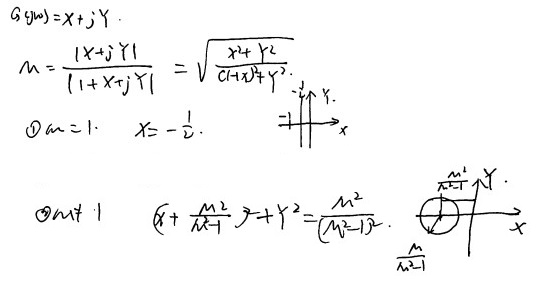 G(jw) = X + jY.
M = |X+jY| / |1+X+jY| = √( (X² + Y²) / ((1+X)² + Y²) ).
① m = 1. X = -1/2.
-1/2 Y.
-1 X
② m ≠ 1 (X + M²/(M²-1))² + Y² = M²/(M²-1)².
M²/(M²-1) Y.
X
M/(M²-1)